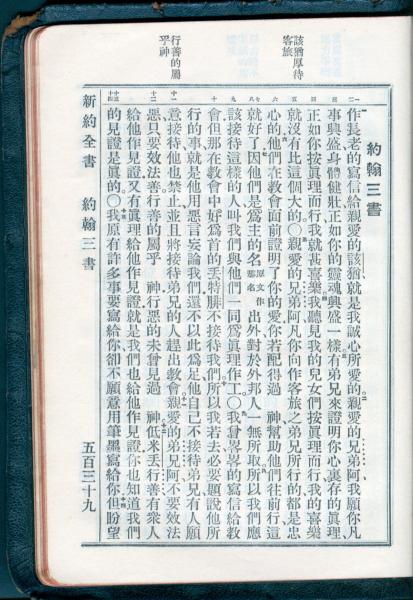 該猶厚待
客旅
行善的屬
乎神
約翰三書
作長老的寫信給親愛的該猶就是我誠心所愛的親愛的兄弟阿我願你凡
事興盛身體健壯正如你的靈魂興盛一樣有弟兄來證明你心裏存的眞理、
正如你按眞理而行我就甚喜樂我聽見我的兒女們按眞理而行我的喜樂
就沒有比這個大的〇親愛的兄弟阿凡你向作客旅之弟兄所行的都是忠
心的他們在教會面前證明了你的愛你若配得過　神幫助他們往前行這
就好了因他們是爲主的名原文作那名出外對於外邦人一無所取所以我們應
該接待這樣的人叫我們與他們一同爲眞理作工〇我曾畧畧的寫信給教
會但那在教會中好爲首的丟特腓不接待我們所以我若去必要題說他所
行的事就是他用惡言妄論我們還不以此爲足他自己不接待弟兄有人願
意接待他也禁止並且將接待弟兄的人趕出教會親愛的弟兄阿不要效法
惡只要效法善行善的屬乎　神行惡的未曾見過　神低米丟行善有衆人
給他作見證又有眞理給他作見證就是我們也給他作見證你也知道我們
的見證是眞的〇我原有許多事要寫給你卻不願意用筆墨寫給你但盼望
新約全書　約翰三書　五百三十九